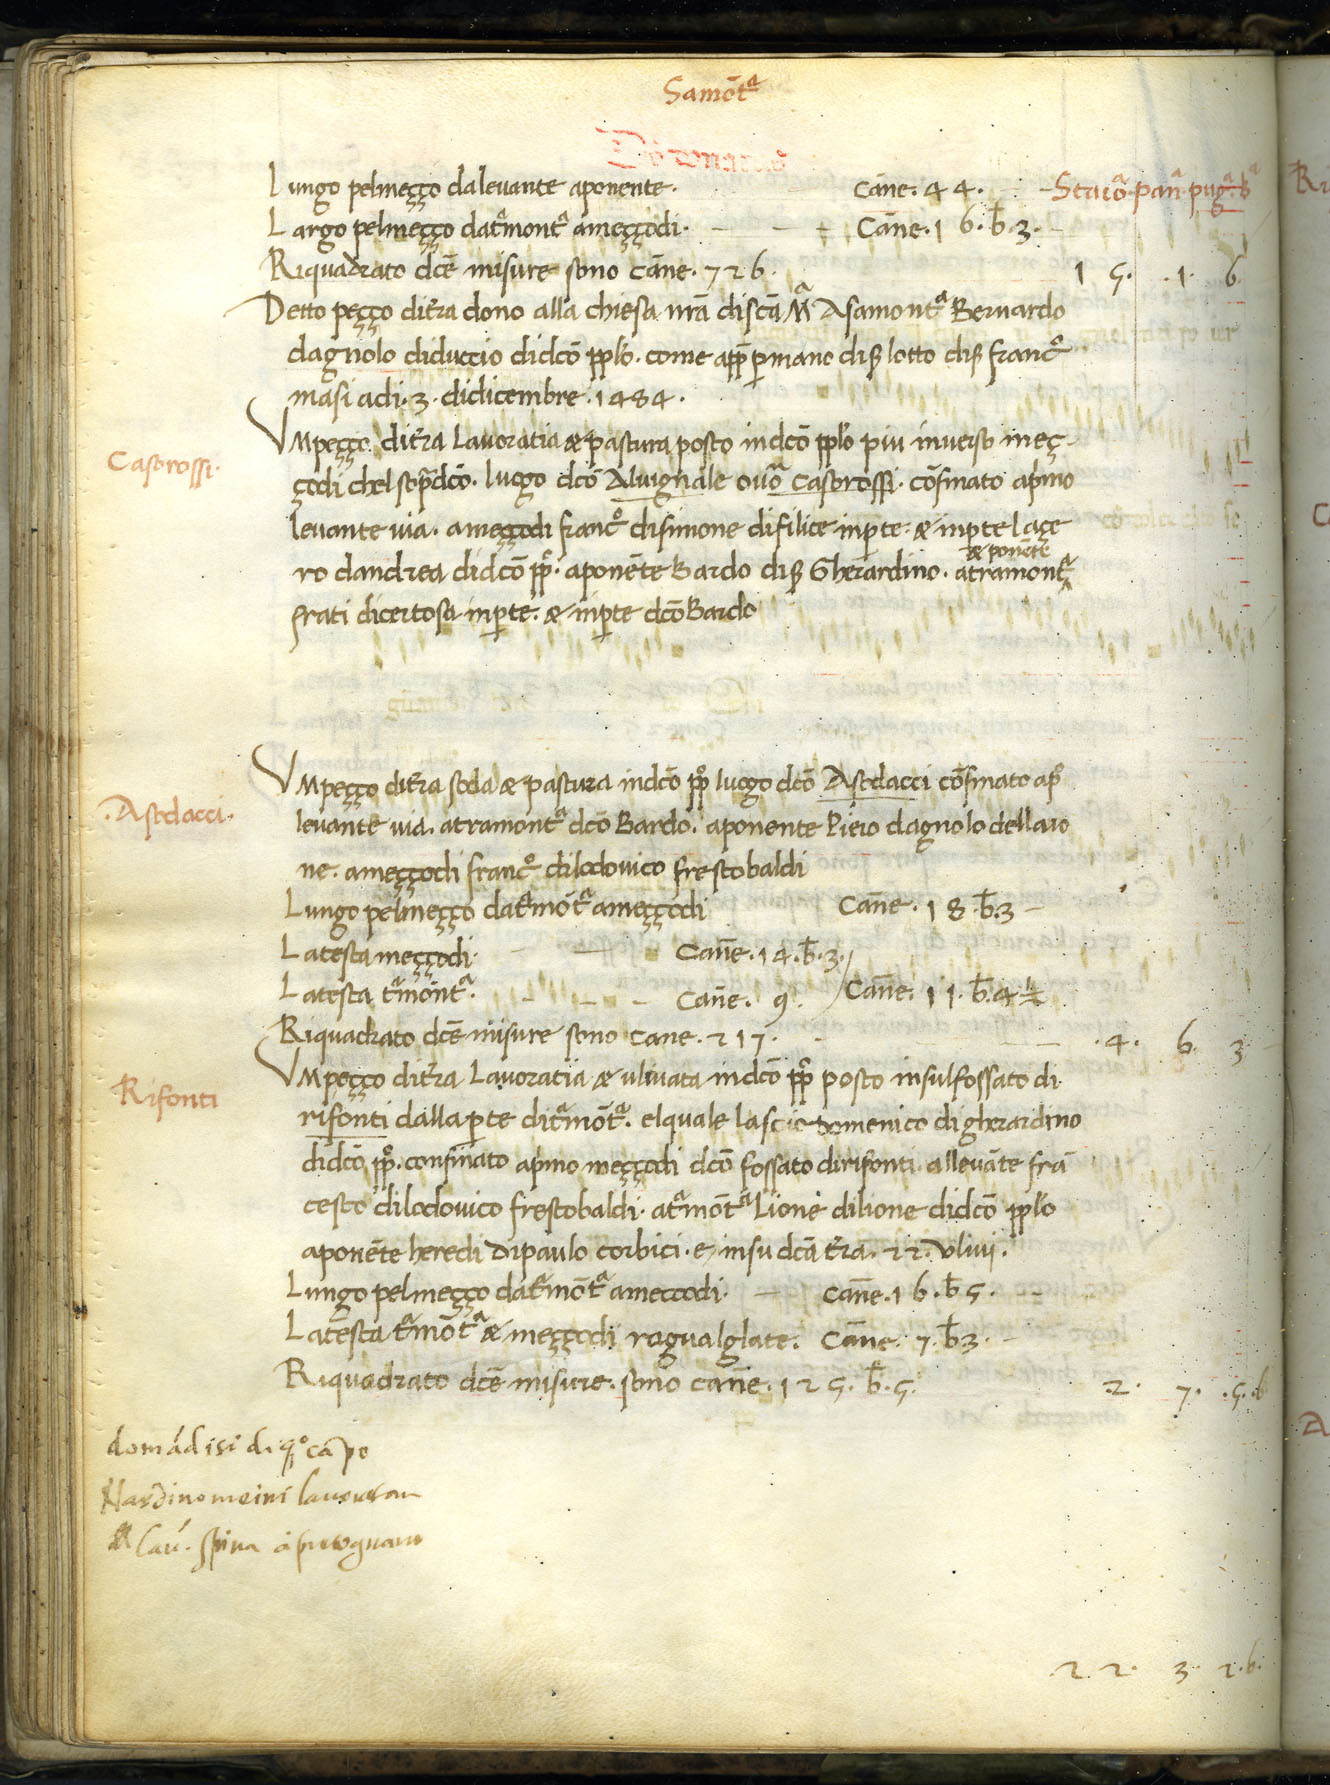 Samōtᵃ
Lungo pelmeçço dalevante aponente. Cāne. 44. Staiōᵃ. pan̄ᵃ. pugᵃ. bᵃ
Largo pelmeçço datᵃmontᵃ ameççodi. Cāne. 16. b̄. 3.
Riquadrato dcē misure sono cāne. 726. 15. .1. 6.
Detto peçço ditr̄a dono alla chiesa nrā discā Mᵃ Asamontᵃ Bernardo
dagnolo diduccio didcō pplō. come app̄ p̱mano disᵣ lotto disᵣ francᵒ
māsi adi. 3. didicembre. 1484.
Casorossi.
Vmpeçço ditr̄a Lavoratia & pastura posto indcō pplō piu inverso meç
çodi chelsop̄dcō. luogo dcō Aluignale ouōᵃ Casorossi. cōfinato ap̱mo
levante via. ameççodi francᵒ disimone difilice inp̱te. & inp̱te laçe
& ponēte
ro dandrea didcō pp̄ᵒ. aponēte Bardo disᵣ Gherardino. atramontᵃ
frati dicertosa inp̱te. & inp̱te dcō Bardo
.Asodacci.
Vmpeçço ditr̄a soda & pastura indcō ppᵒ luogo dcō Asodacci cōfinato apᵒ
levante via. atramontᵃ dcō Bardo. aponente Piero dagnolo dellaio
ne. ameççodi francᵒ dilodovico frescobaldi
Lungo pelmeçço datᵃmōtᵃ ameççodi Cāne. 18. b̄. 3
Latesta meççodi. Cāne. 14. b̄. 3.
Latesta tᵃmōntᵃ. Cāne. 9. Cāne. 11. b̄. 4 ½
Riquadrato dcē misure sono cane. 217. .4. 6. 3
Rifonti
Vmpeçço ditr̄a Lavoratia & ulivata indcō ppᵒ posto insulfossato di
rifonti dallap̱te ditᵃmōtᵃ. elquale lascio domenico digherardino
didcō ppᵒ. confinato ap̱mo meççodi dcō fossato dirifonti. allevāte frā
cesco dilodovico frescobaldi. atᵃmōtᵃ Lione dilione didcō pplō
aponēte heredi dipaulo corbici. e insu dcā tr̄a. 22. vlivi.
Lungo pelmeçço datᵃmōtᵃ ameccodi. Cāne. 16. b̄ 5.
Latesta tᵃmōtᵃ & meççodi ragualglate. Cāne. 7. b̄ 3.
Riquadrato dcē misure. sono cāne. 125. b̄. 5. .2. 7. .5. b
domādisi di qᵒ cāpo
Nardinomeini
22. 3. 2. b.